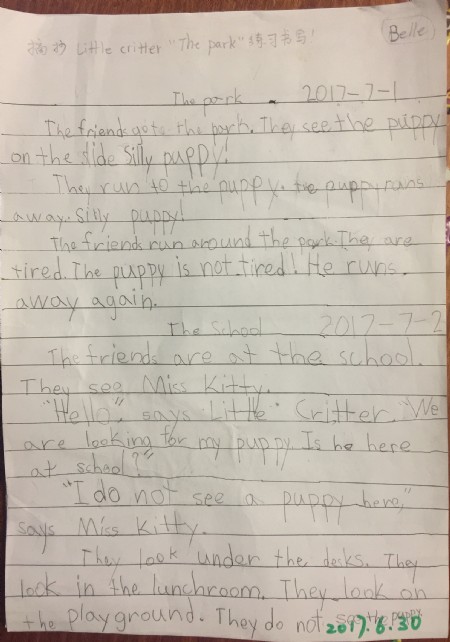 摘抄 Little critter "The park" 练习书写!
Belle
The park - 2017-7-1
The friends goto the park. They see the puppy
on the slide Silly puppy!
They run to the puppy. the puppy rans
away. Silly puppy!
The friends run around the park They are
tired. The puppy is not tired! He runs.
away again.
The School 2017-7-2
The friends are at the school.
They see Miss Kitty.
"Hello", says Little Critter. "We
are looking for my puppy Is he here
at school?"
"I do not see a puppy here,"
says Miss Kitty.
They look under the desks. They
look in the lunchroom. They look on
the playground. They do not see the puppy
2017.6.30